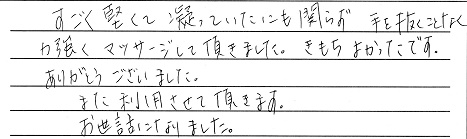 すごく堅くて凝っていたにも関らず 手を抜くことなく
力強くマッサージして頂きました。きもちよかったです。
ありがとうございました。
また利用させて頂きます。
お世話になりました。